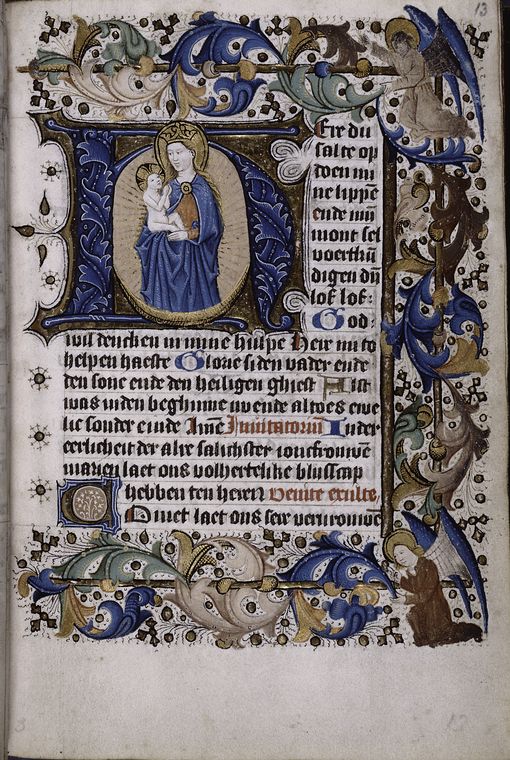 13
Heir du
salte op
doen mi
ne lippē
ende mij
mont sel
voerthū
digen dij
lof lof:
God
wil dencken in mine hulpe Heir mi to
helpen haeste Glorie si den vader ende
den sone ende den heiligen ghiest Als it
was inden beghinne nu ende altoes ewe
lic sonder einde Amē Inuitatoriū Inder
eerlicheit der alre salichster ioncfrouwē
marien laet ons volhertelike bliscap
hebben ten heren Uenite exulte
Comet laet ons seer vervrouwē